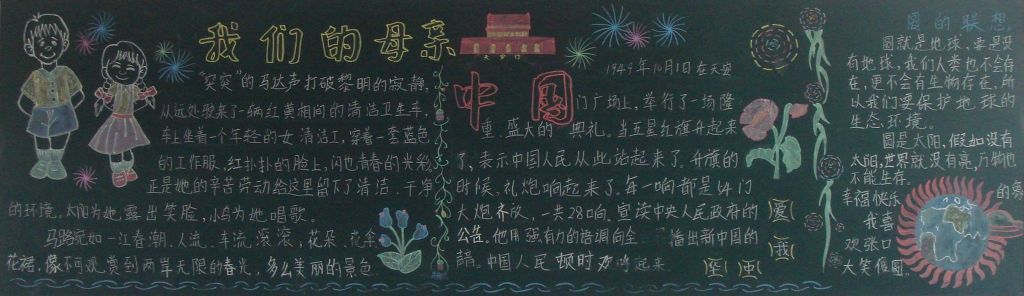 我们的母亲
天安门
中国
"突突"的马达声打破黎明的寂静,
从远处驶来了一辆红黄相间的清洁卫生车,
车上坐着一个年轻的女清洁工,穿着一套蓝色
的工作服,红扑扑的脸上,闪也青春的光彩,
正是她的辛苦劳动给这里留下了清洁、干净
的环境。太阳为她露出笑脸,小鸟为她唱歌。
马路宛如一江春潮,人流、车流滚滚;花朵、花伞
花裙,像不可观赏到两岸无限的春光,多么美丽的景色
1949年10月1日在天安
门广场上,举行了一场隆
重、盛大的典礼。当五星红旗升起来
了,表示中国人民从此站起来了,升旗的
时候,礼炮响起来了,每一响都是54门
大炮齐放,一共28响。宣读中央人民政府的
公告。他用强有力的语调向全 播出新中国的
中国人民顿时 起来
爱
我
至中
圆的联想
圆就是地球,要是没
有地球,我们人类也不会存
在,更不会有生物存在,所
以我们要保护地球的
生态环境。
圆是太阳,假如没有
太阳,世界就没有亮,万物也
不能生存。
幸福快乐
的
我喜
欢张口
大笑 圆